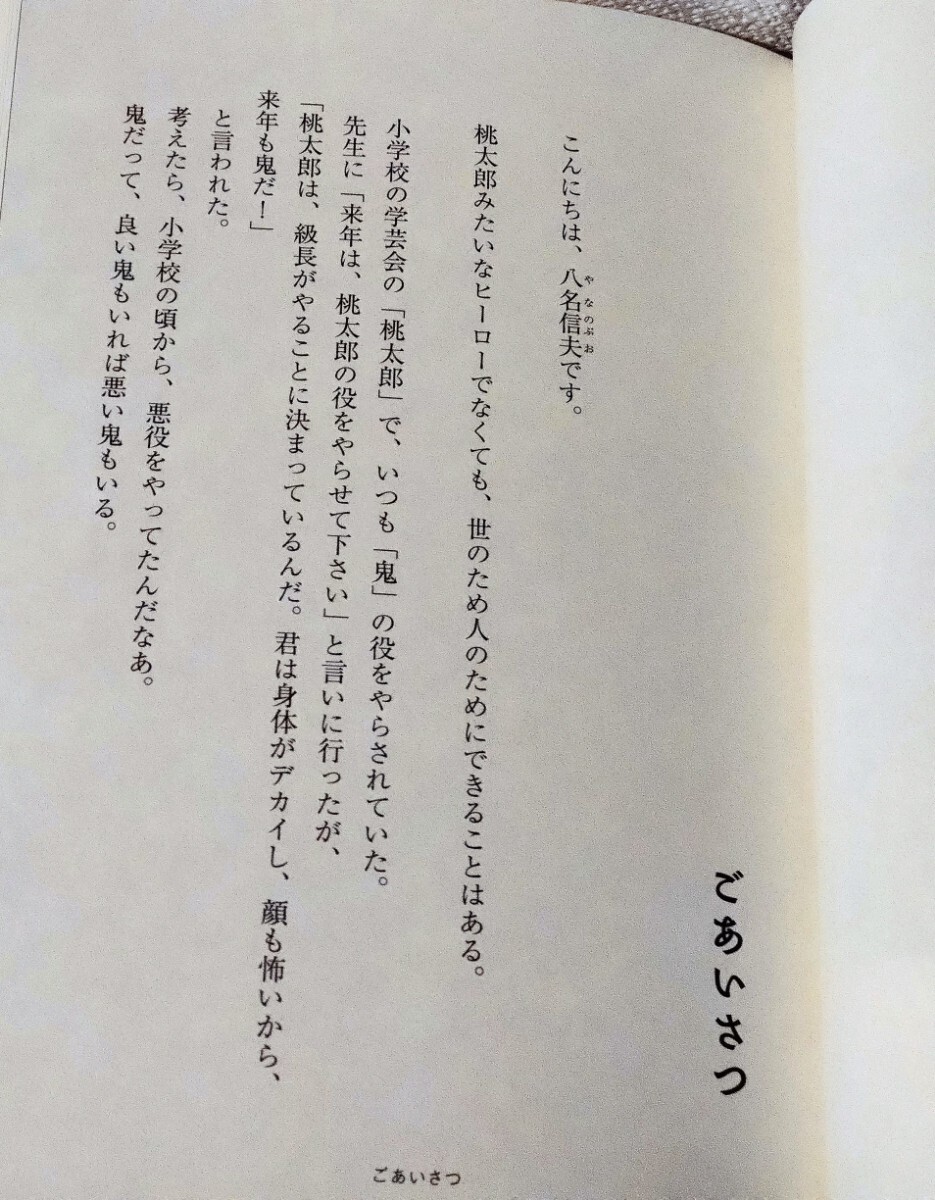 ごあいさつ
こんにちは、八名信夫です。
やなのぶお
桃太郎みたいなヒーローでなくても、世のため人のためにできることはある。
小学校の学芸会の「桃太郎」で、いつも「鬼」の役をやらされていた。
先生に「来年は、桃太郎の役をやらせて下さい」と言いに行ったが、
「桃太郎は、級長がやることに決まっているんだ。君は身体がデカイし、顔も怖いから、
来年も鬼だ！」
と言われた。
考えたら、小学校の頃から、悪役をやってたんだなあ。
鬼だって、良い鬼もいれば悪い鬼もいる。
ごあいさつ